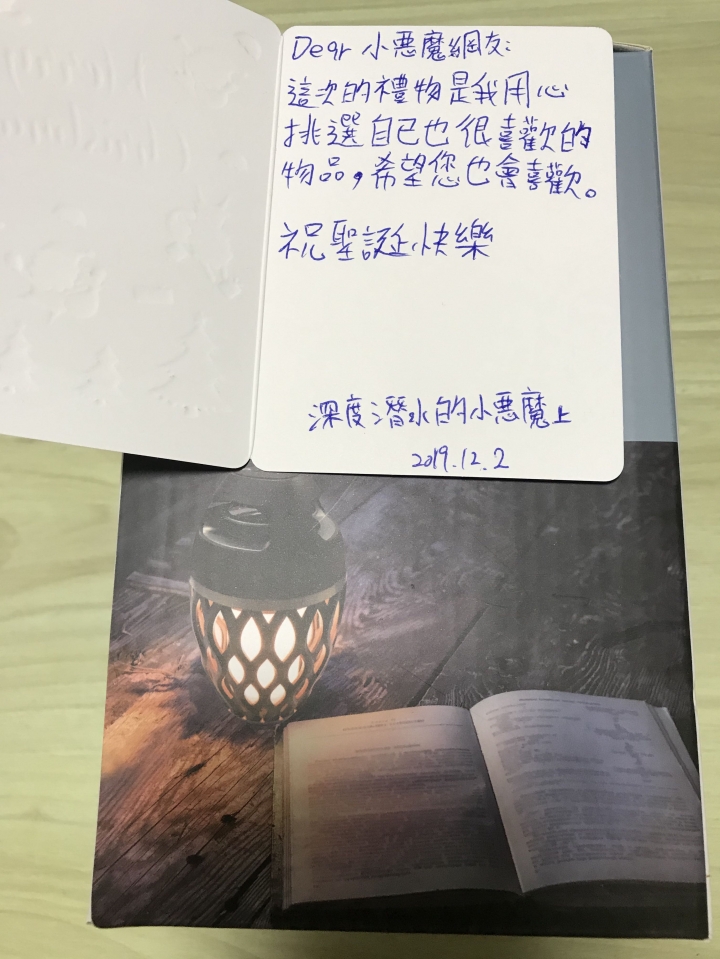 Dear 小惡魔網友:
這次的禮物是我用心
挑選自己也很喜歡的
物品,希望您也會喜歡。
祝聖誕快樂
深度潛水的小惡魔上
2019.12.2